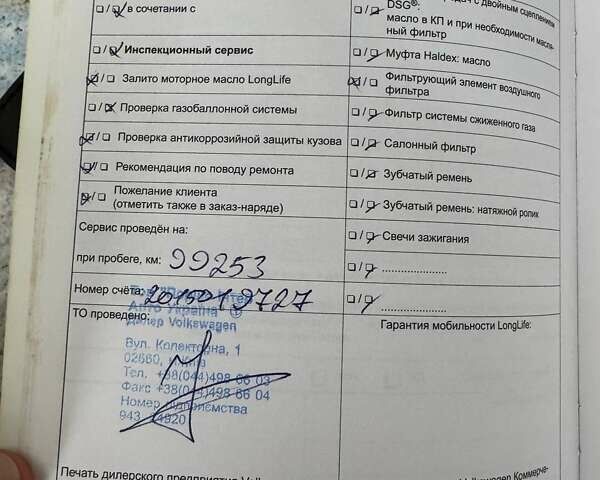 ☐ / ☑ в сочетании с
☐ / ☑ Инспекционный сервис
☒ / ☐ Залито моторное масло LongLife
☐ / ☒ Проверка газобаллонной системы
☒ / ☐ Проверка антикоррозийной защиты кузова
☑ / ☐ Рекомендация по поводу ремонта
☑ / ☐ Пожелание клиента
(отметить также в заказ-наряде)
Сервис проведён на:
при пробеге, км: 99253
Номер счёта: 2015019727
ТО проведено:
Авто Україна
Дилер Volkswagen
Вул. Колекторна, 1
02660,
Тел. +38(044)498 66 03
Факс +38(044)498 66 04
Номер підприємства
943
Печать дилерского предприятия
двойным сцеплением
☐ / ☑ DSG®:
масло в КП и при необходимости масля-
ный фильтр
☐ / ☑ Муфта Haldex: масло
☒ / ☐ Фильтрующий элемент воздушного
фильтра
☐ / ☑ Фильтр системы сжиженного газа
☐ / ☑ Салонный фильтр
☐ / ☑ Зубчатый ремень
☐ / ☑ Зубчатый ремень: натяжной ролик
☐ / ☑ Свечи зажигания
☐ / ☑ ......................
☐ / ☑ ......................
Гарантия мобильности LongLife:
Volkswagen Коммерче-